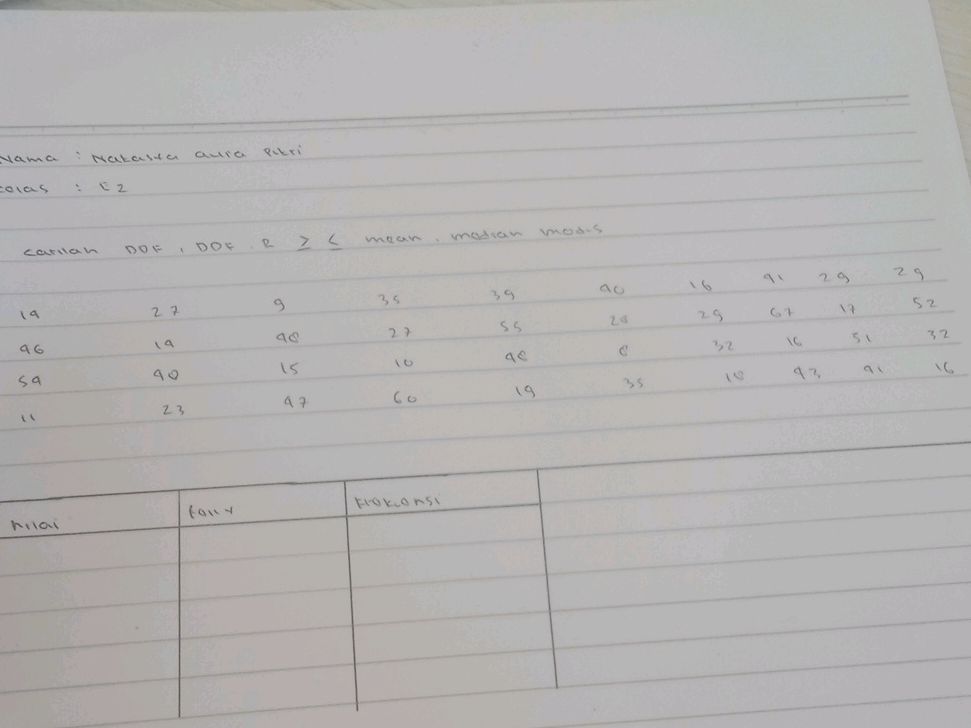 Nama : Nakasya aura Putri
kelas : E2
carilah DDF, DDF R ≥ ≤ mean, median modus
19 27 9 35 39 40 16 41 29 29
46 19 48 27 55 28 29 67 17 52
54 40 15 10 48 8 32 16 51 32
11 23 47 60 19 35 18 43 41 16
nilai tally Frekuensi